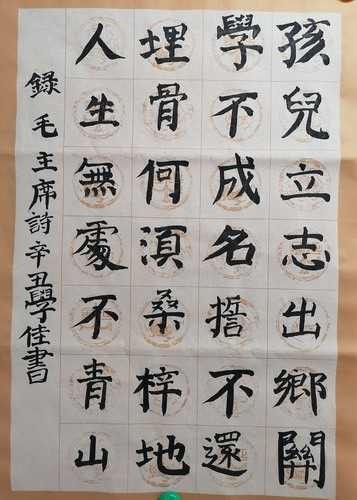 孩兒立志出鄉關
學不成名誓不還
埋骨何須桑梓地
人生無處不青山
錄毛主席詩辛丑學佳書